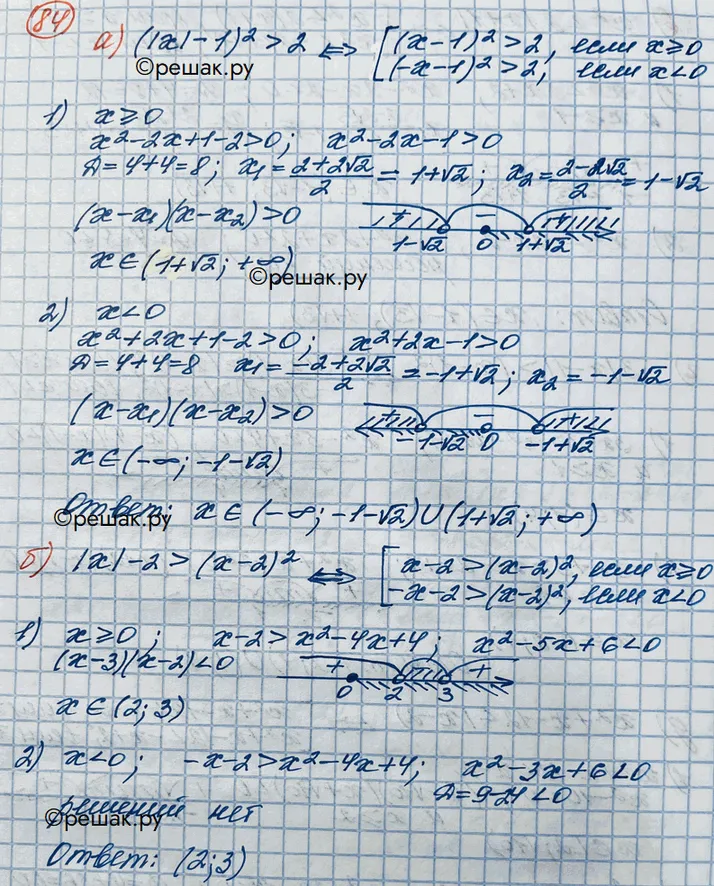 84
а) (|x|-1)² > 2 ⟺ [ (x-1)² > 2, если x≥0
(-x-1)² > 2, если x<0
©решак.ру
1) x≥0
x²-2x+1-2>0; x²-2x-1>0
D=4+4=8; x₁=(2+2√2)/2=1+√2; x₂=(2-2√2)/2=1-√2
(x-x₁)(x-x₂)>0
+ − +
1-√2 0 1+√2
x∈(1+√2; +∞)
©решак.ру
2) x<0
x²+2x+1-2>0; x²+2x-1>0
D=4+4=8 x₁=(-2+2√2)/2=-1+√2; x₂=-1-√2
(x-x₁)(x-x₂)>0
+ − +
-1-√2 0 -1+√2
x∈(-∞; -1-√2)
Ответ: x∈(-∞; -1-√2)∪(1+√2; +∞)
©решак.ру
б) |x|-2>(x-2)² ⟺ [ x-2>(x-2)², если x≥0
-x-2>(x-2)², если x<0
1) x≥0; x-2>x²-4x+4; x²-5x+6<0
(x-3)(x-2)<0
+ − +
0 2 3
x∈(2; 3)
2) x<0; -x-2>x²-4x+4; x²-3x+6<0
D=9-24<0
решений нет
©решак.ру
Ответ: (2;3)